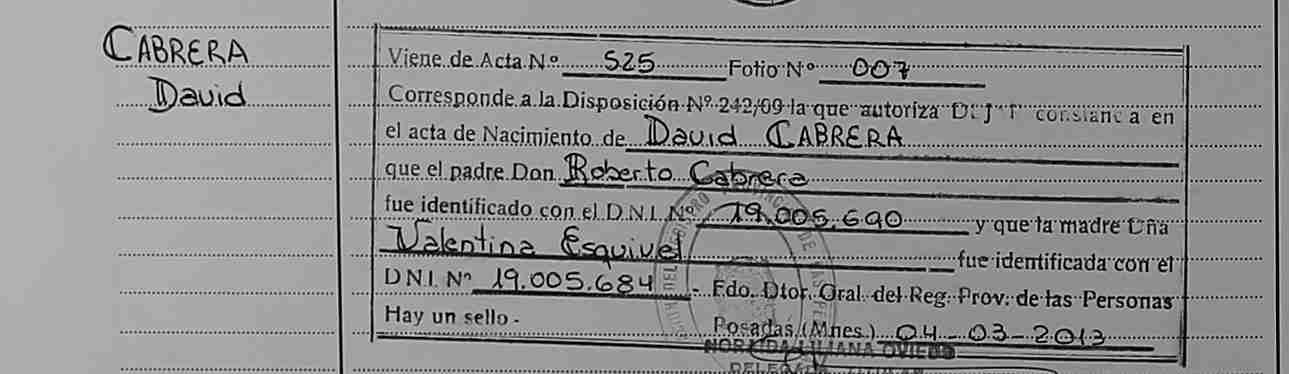 CABRERA
David
Viene de Acta Nº 525 Folio Nº 007
Corresponde a la Disposición Nº 242/09 la que autoriza constancia en
el acta de Nacimiento de David CABRERA
que el padre Don Roberto Cabrera
fue identificado con el D.N.I. Nº 19.005.690 y que la madre Dña
Valentina Esquivel fue identificada con el
D.N.I. Nº 19.005.684 - Fdo. Dtor. Gral. del Reg. Prov. de las Personas
Hay un sello - Posadas (Mnes.) 04-03-2013
LILIANA OVIEDO
DELEGADA TITULAR